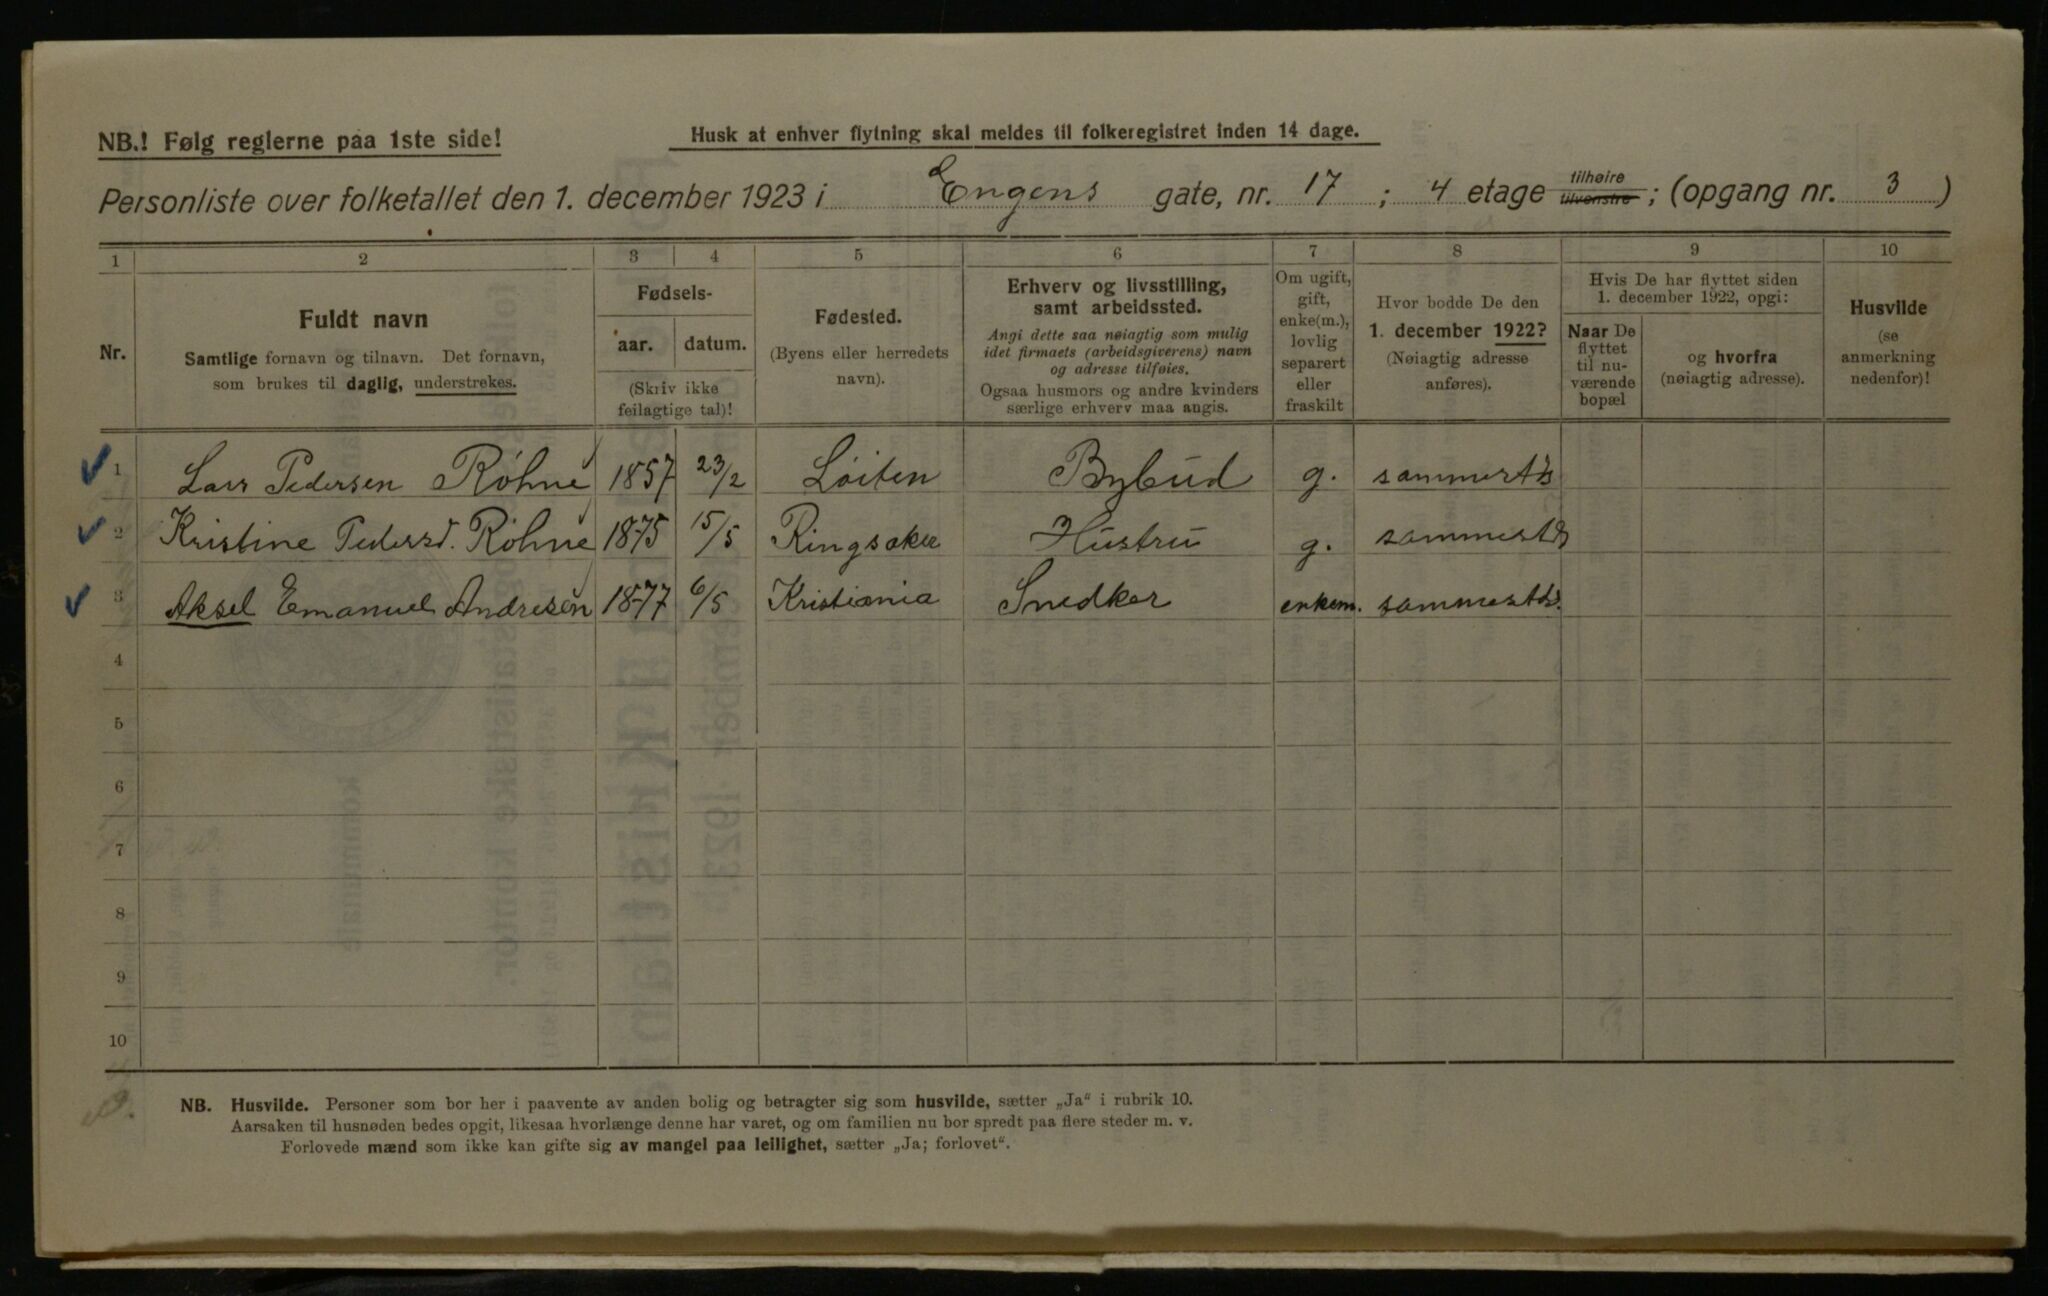 NB.! Følg reglerne paa 1ste side!
Husk at enhver flytning skal meldes til folkeregistret inden 14 dage.
Personliste over folketallet den 1. december 1923 i Engens gate, nr. 17 ; 4 etage tilhøire tilvenstre ; (opgang nr. 3 )
1 2 3 4 5 6 7 8 9 10
Nr.
Fuldt navn
Samtlige fornavn og tilnavn. Det fornavn,
som brukes til daglig, understrekes.
Fødsels-
aar. datum.
(Skriv ikke
feilagtige tal)!
Fødested.
(Byens eller herredets
navn).
Erhverv og livsstilling,
samt arbeidssted.
Angi dette saa nøiagtig som mulig
idet firmaets (arbeidsgiverens) navn
og adresse tilføies.
Ogsaa husmors og andre kvinders
særlige erhverv maa angis.
Om ugift,
gift,
enke(m.),
lovlig
separert
eller
fraskilt
Hvor bodde De den
1. december 1922?
(Nøiagtig adresse
anføres).
Hvis De har flyttet siden
1. december 1922, opgi:
Naar De
flyttet
til nu-
værende
bopæl
og hvorfra
(nøiagtig adresse).
Husvilde
(se
anmerkning
nedenfor)!
1 Lars Pedersen Röhne 1857 23/2 Löiten Bybud g. sammesteds
2 Kristine Pedersd. Röhne 1875 15/5 Ringsaker Hustru g. sammestds
3 Aksel Emanuel Andresen 1877 6/5 Kristiania Snedker enkem. sammestds.
4
5
6
7
8
9
10
NB. Husvilde. Personer som bor her i paavente av anden bolig og betragter sig som husvilde, sætter „Ja" i rubrik 10.
Aarsaken til husnøden bedes opgit, likesaa hvorlænge denne har varet, og om familien nu bor spredt paa flere steder m. v.
Forlovede mænd som ikke kan gifte sig av mangel paa leilighet, sætter „Ja; forlovet".